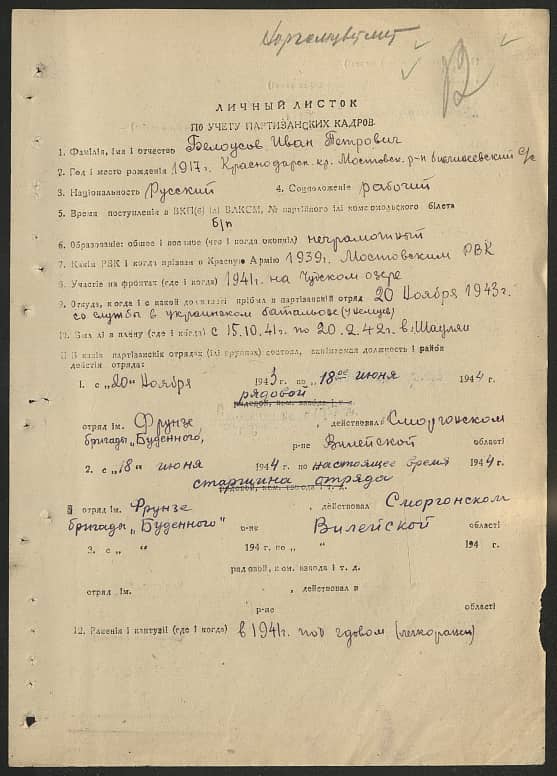 12
ЛИЧНЫЙ ЛИСТОК
ПО УЧЕТУ ПАРТИЗАНСКИХ КАДРОВ.
1. Фамілія, імя і отчество Белоусов Иван Петрович
2. Год і место рождения 1917г. Краснодарск. кр. Мостовск. р-н с/с
3. Національность Русский 4. Соцположение рабочий
5. Время поступления в ВКП(б) ілі ВЛКСМ, № партійного ілі комсомольского білета
б/п
6. Образование: общее і военное (что і когда окончіл) неграмотный
7. Какім РВК і когда прізван в Красную Армію 1939г. Мостовским РВК
8. Участіе на фронтах (где і когда) 1941г. на Чудском озере
9. Откуда, когда і с какой должності прібыл в партізанскій отряд 20 Ноября 1943г.
со службы в украинском батальоне (у немцев)
10. Был лі в плену (где і когда) с 15.10.41г. по 20.2.42г. в г. Шауляй
11. В какіх партізанскіх отрядах (ілі группах) состоял, занімаемая должность і район
действія отряда:
1. с „20“ Ноября 1943 г. по „18ое июня 1944 г.
рядовой
рядовой, ком. взвода і т. д.
отряд ім. Фрунзе , действовал Сморгонском
бригады „Буденного„ р-не Вилейской області
2. с „18“ июня 1944 г. по настоящее время 1944 г.
старшина отряда
рядовой, ком. взвода і т. д.
отряд ім. Фрунзе , действовал Сморгонском
бригады „Буденного“ р-не Вилейской області
3. с „ “ 194 г. по „ “ 194 г.
рядовой, ком. взвода і т. д.
отряд ім. , действовал в
р-не області
12. Раненія і контузіі (где і когда) в 1941г. под Гдовом (легкоранен)